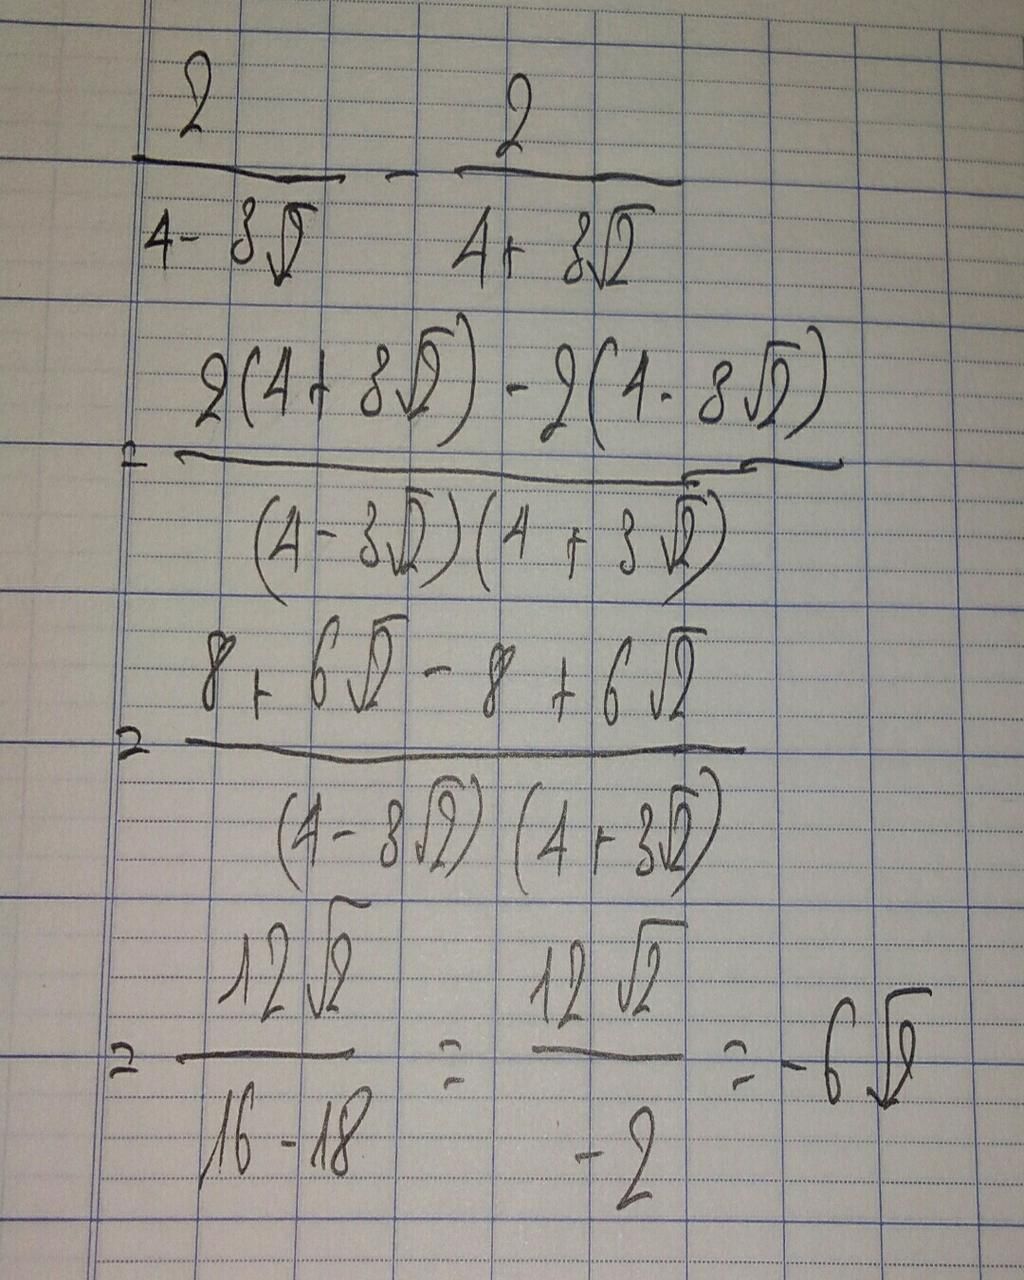 2/(4 - 3√2) - 2/(4 + 3√2)
= (2(4 + 3√2) - 2(4 - 3√2))/((4 - 3√2)(4 + 3√2))
= (8 + 6√2 - 8 + 6√2)/((4 - 3√2)(4 + 3√2))
= 12√2/(16 - 18) = 12√2/(-2) = -6√2